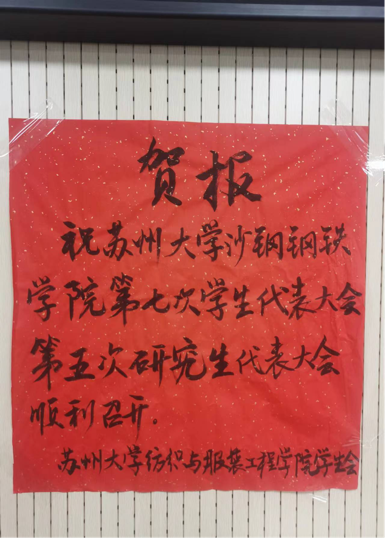 贺报
祝苏州大学沙钢钢铁
学院第七次学生代表大会
第五次研究生代表大会
顺利召开。
苏州大学纺织与服装工程学院学生会